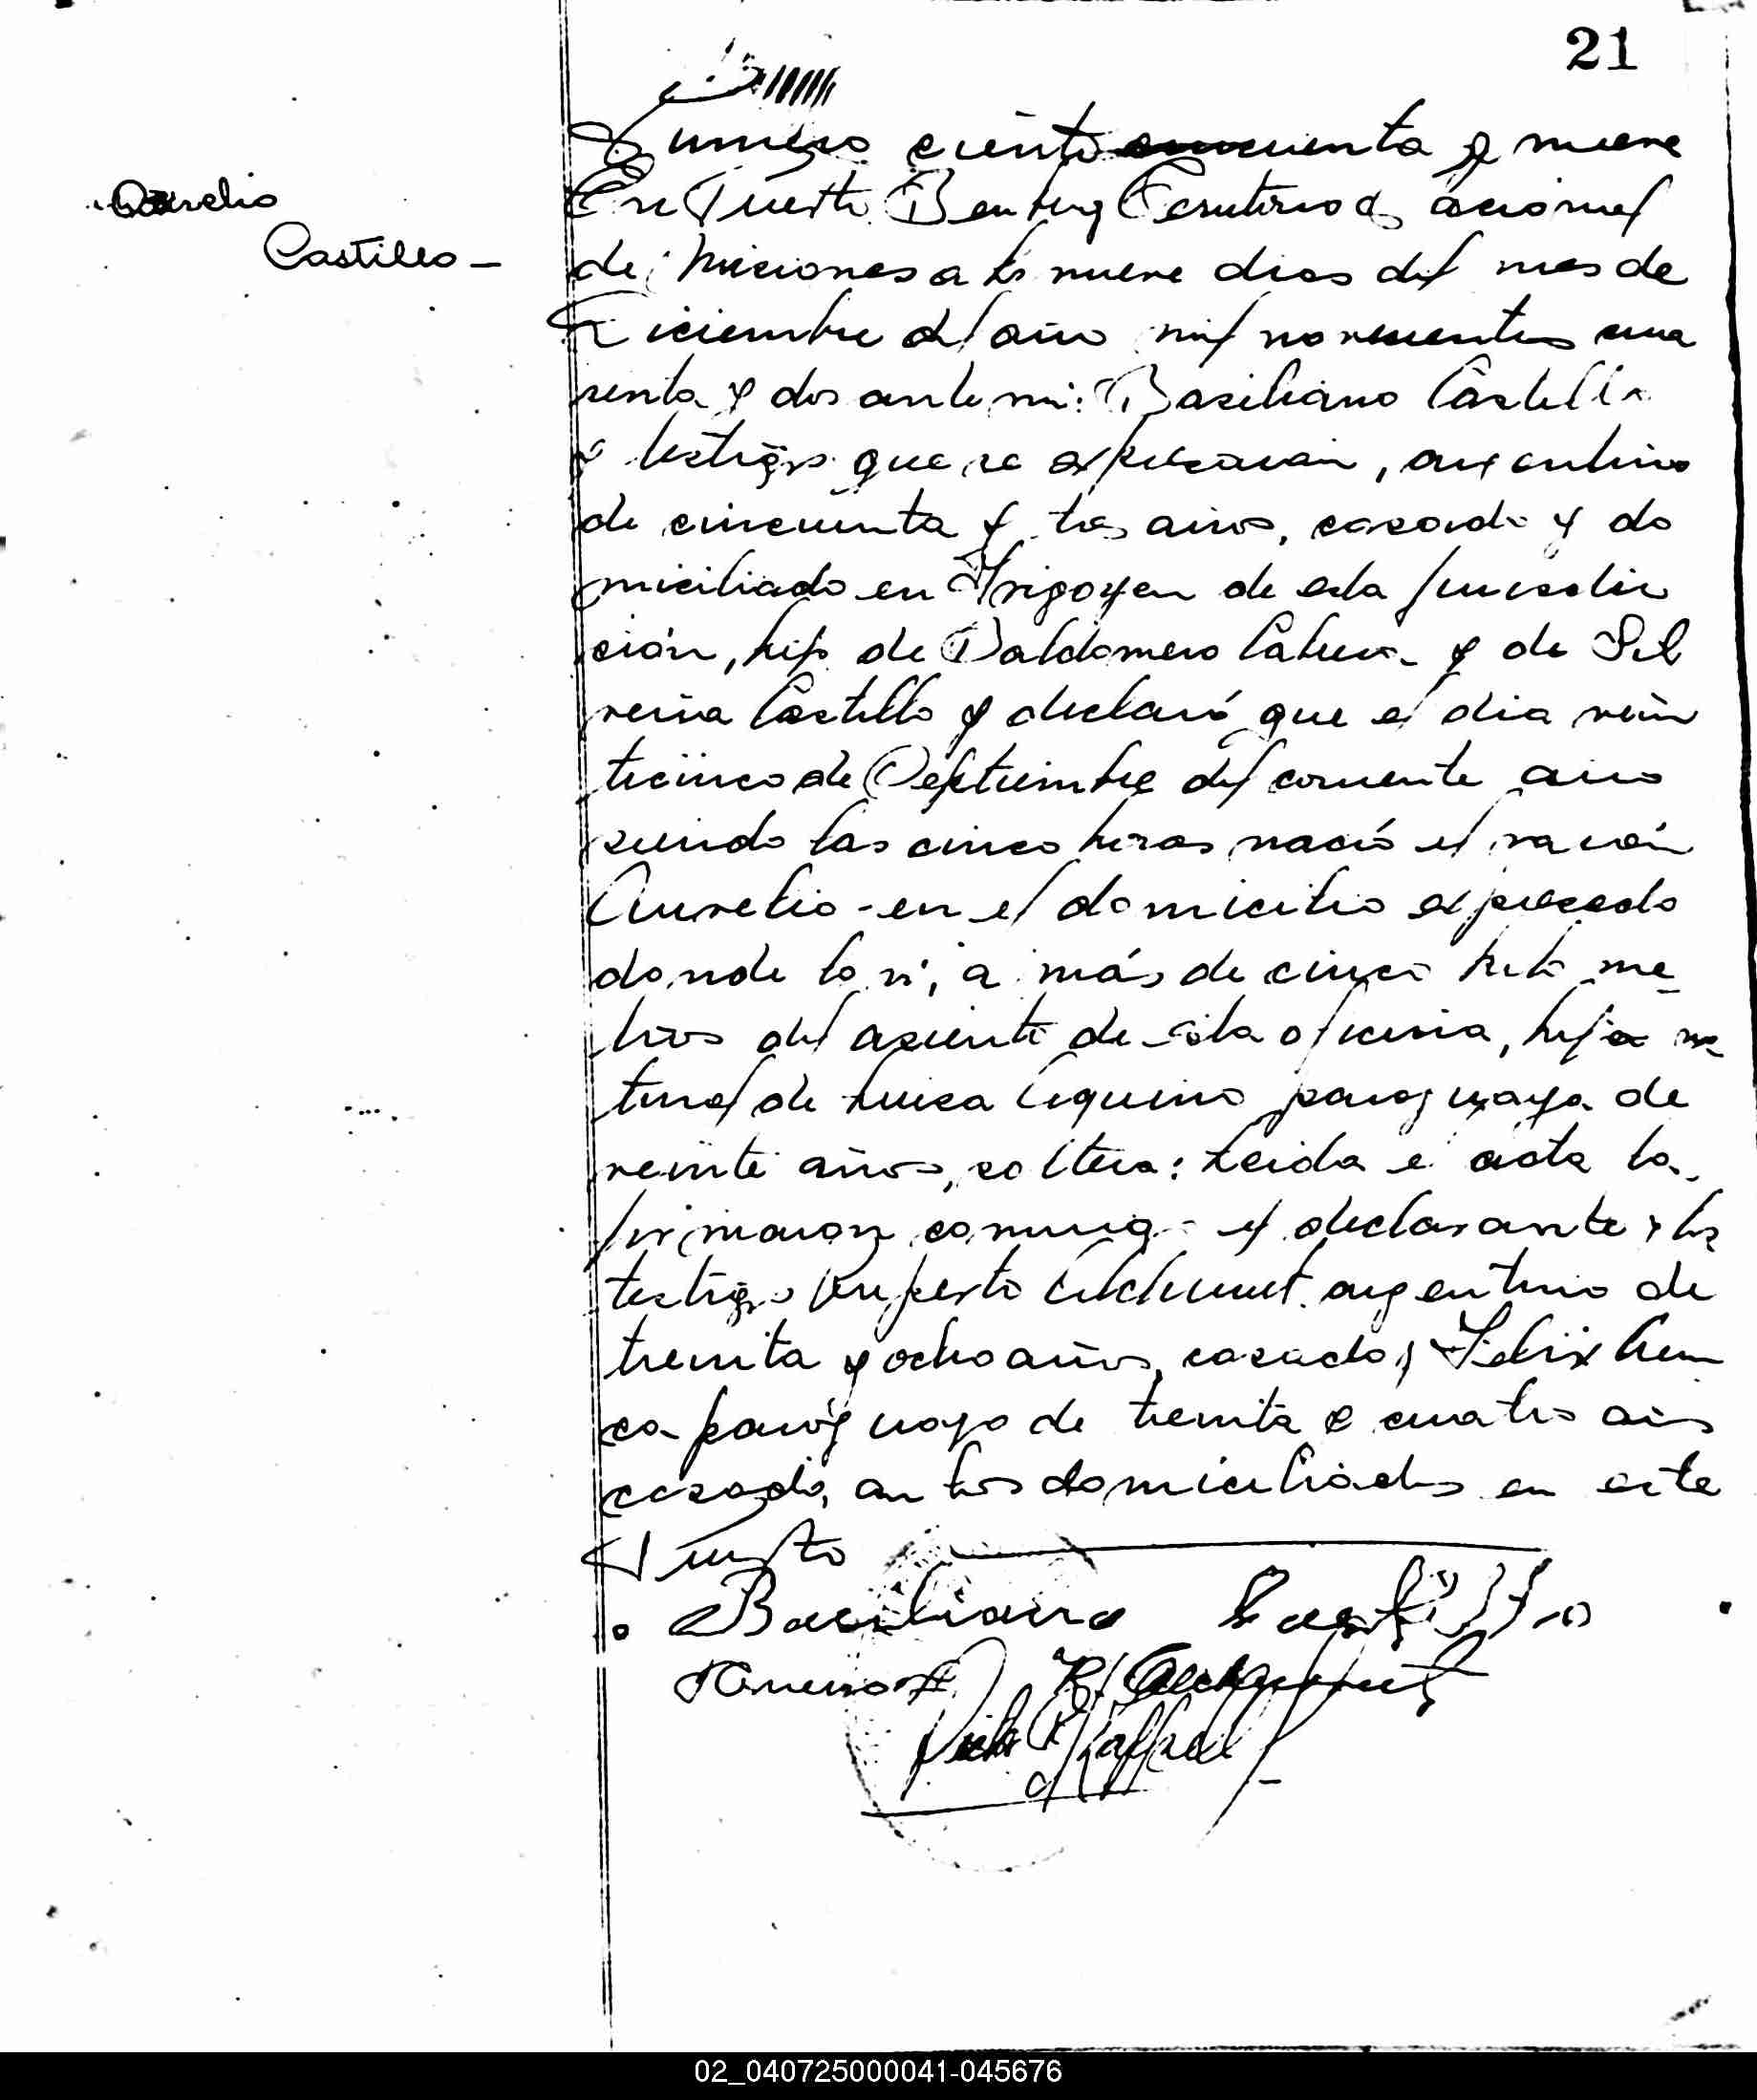 21
Aurelio
Castillo -
Numero ciento cincuenta y nueve
En Puerto Bemberg Territorio Nacional
de Misiones a los nueve dias del mes de
Diciembre del año mil novecientos cua
renta y dos ante mi: Basiliano Castillo
y testigos que se expresaran, argentino
de cincuenta y tres años, casado y do
miciliado en Irigoyen de esta jurisdic
ción, hijo de Baldomero Cabrera y de Sil
veria Castillo y declaró que el dia vein
ticinco de Septiembre del corriente año
siendo las cinco horas nació el varón
Aurelio - en el domicilio expresado
donde lo vi, a más de cinco kilo me-
tros del asiento de esta oficina, hijo na
tural de Luisa Aquino paraguaya de
veinte años, soltera: Leida el acta la
firmaron conmigo el declarante y los
testigos Ruperto argentino de
treinta y ocho años, casado y Felix
paraguayo de treinta y cuatro años
casado, ambos domiciliados en este
Puerto
Basiliano Castillo
02_040725000041-045676